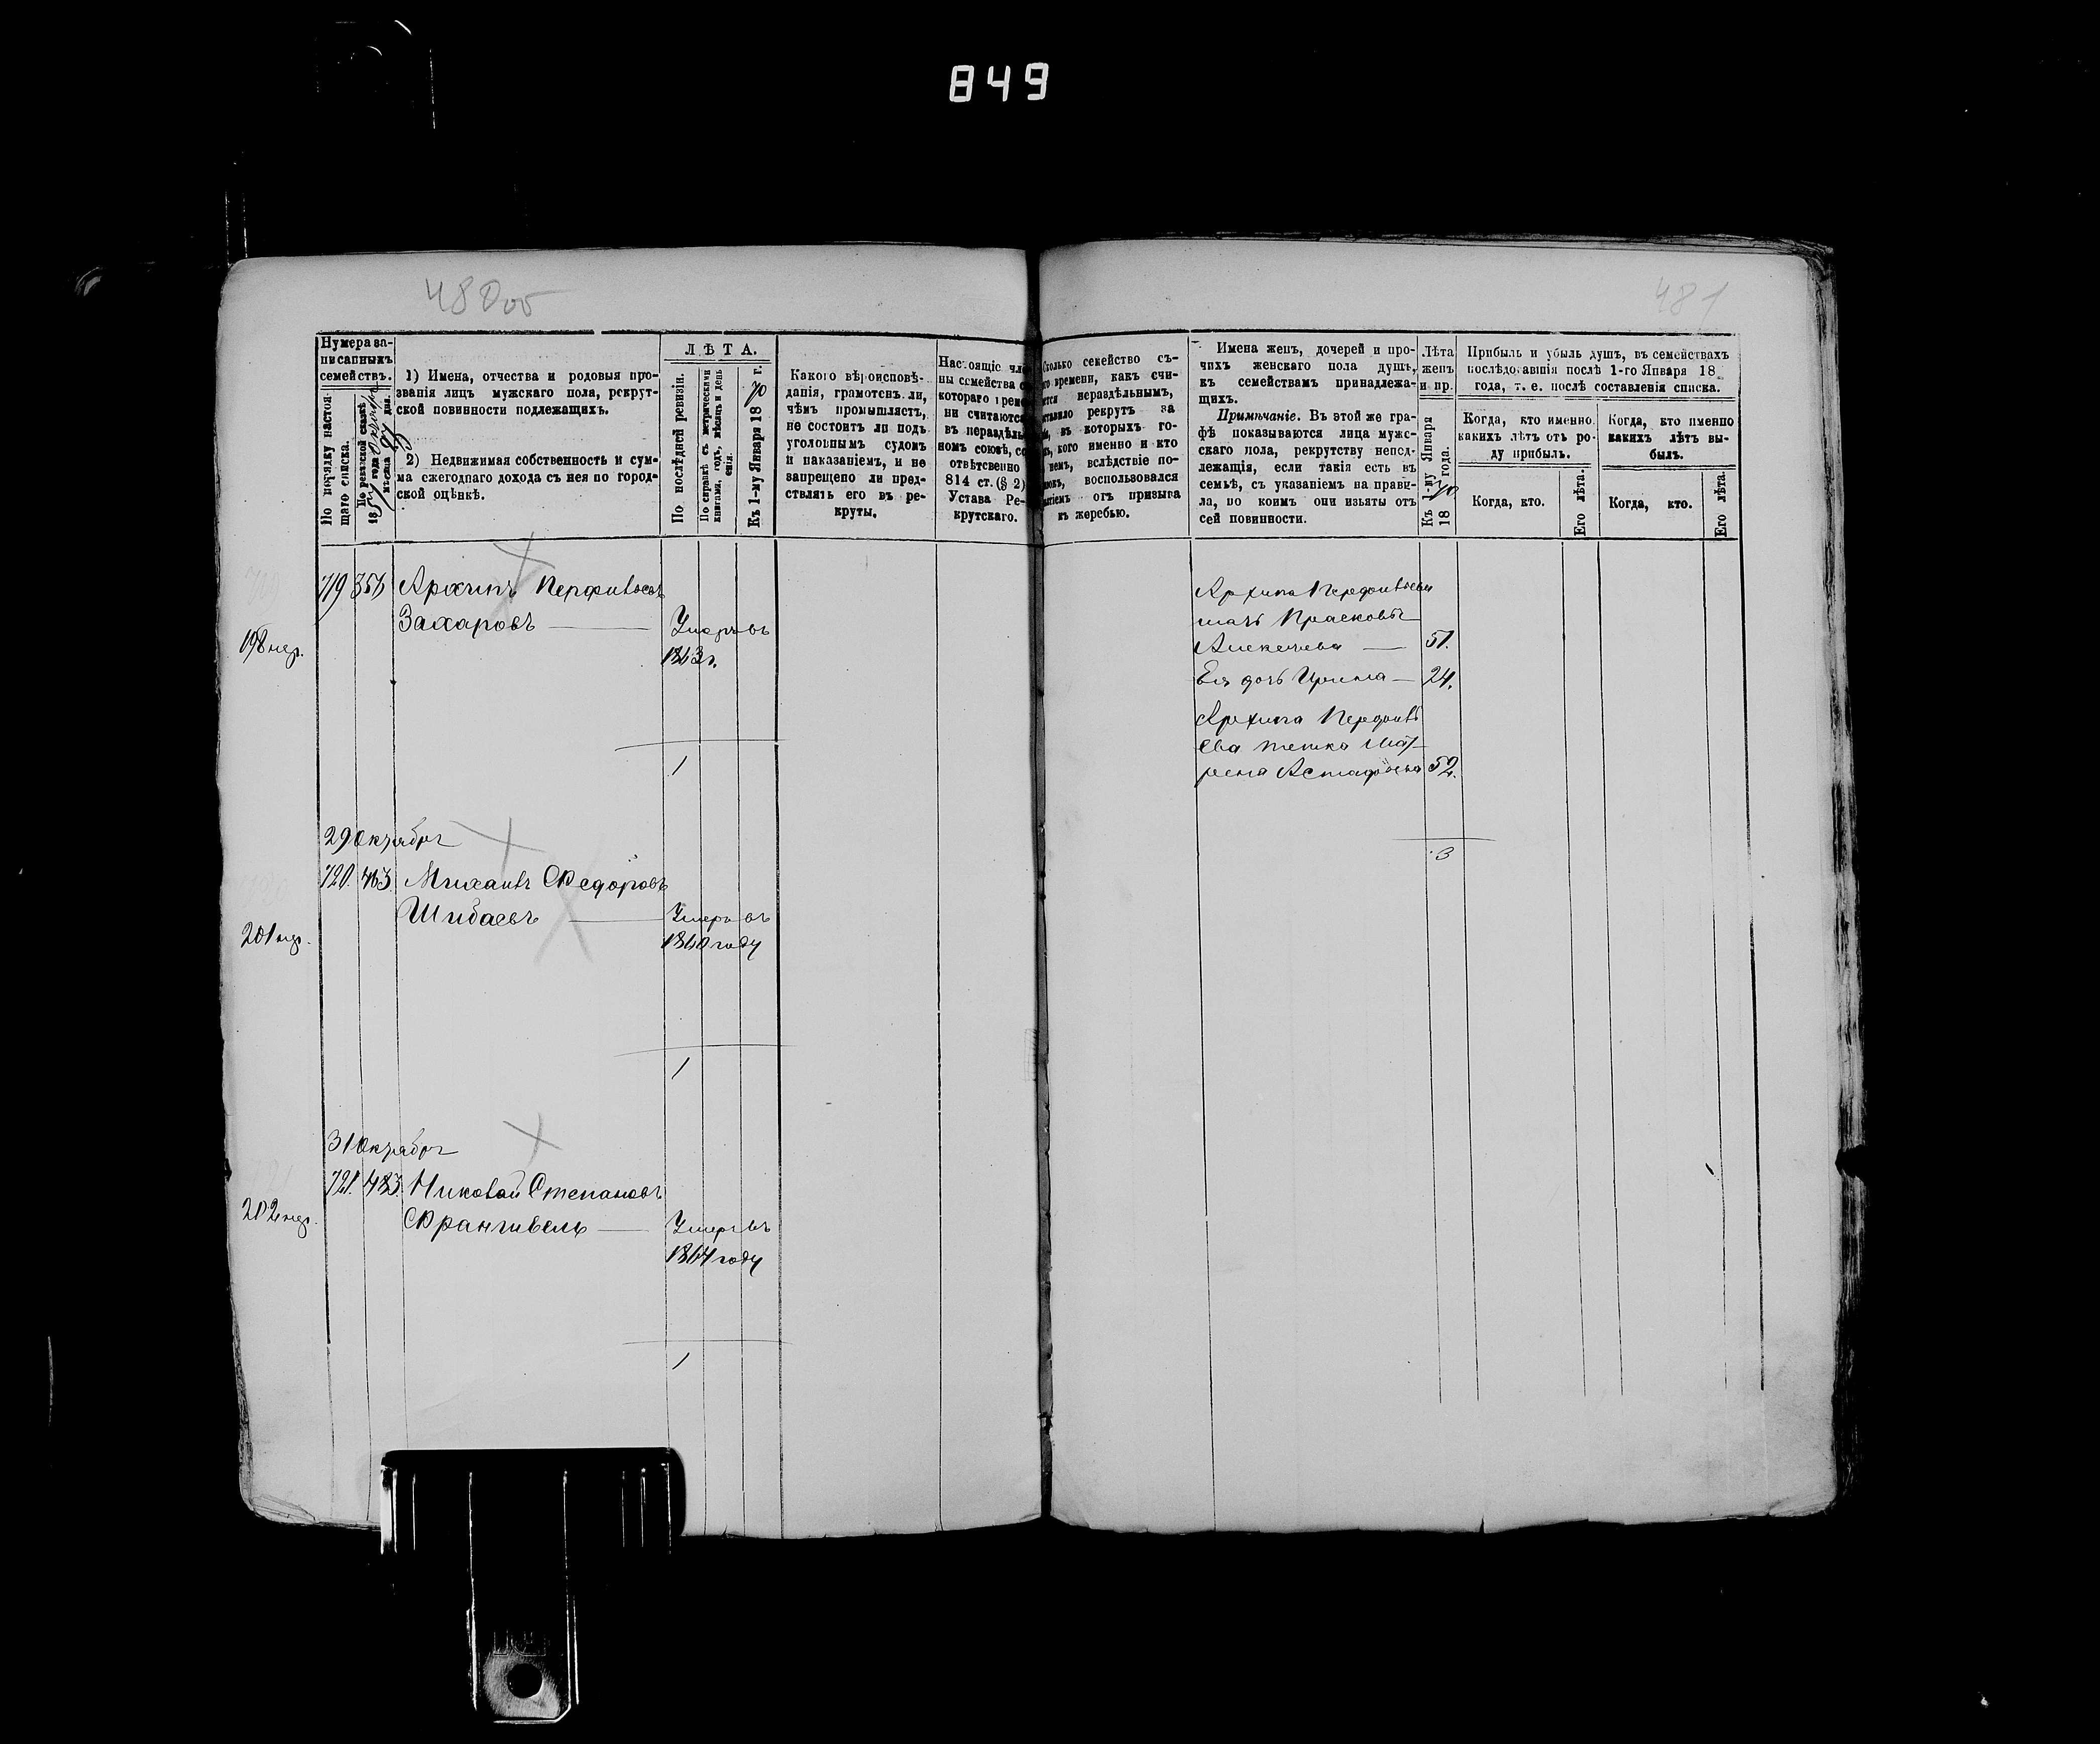 849
480об
481
Нумера за-
писанныхъ
семействъ.
По порядку настоя-
щаго списка.
По ревизской сказкѣ
18 года
мѣсяца дня.
1) Имена, отчества и родовыя про-
званія лицъ мужскаго пола, рекрут-
ской повинности подлежащихъ.
2) Недвижимая собственность и сум-
ма ежегоднаго дохода съ нея по город-
ской оцѣнкѣ.
ЛѢТА.
По послѣдней ревизіи.
По справкѣ съ метрическими
книгами, годъ, мѣсяцъ и день
Къ 1-му Января 1870 г.
Какого вѣроисповѣ-
данія, грамотенъ ли,
чѣмъ промышляетъ,
не состоитъ ли подъ
уголовнымъ судомъ
и наказаніемъ, и не
запрещено ли пред-
ставлять его въ ре-
круты.
Настоящіе чле
ны семейства с
котораго врем
ни считаются
въ нераздѣль
номъ союзѣ, со
отвѣтсвенно
814 ст. (§ 2)
Устава Ре-
крутскаго.
сколько семейство съ-
го времени, какъ счи-
ется нераздѣльнымъ,
ставило рекрутъ за
въ которыхъ го-
кого именно и кто
немъ, вслѣдствіе по-
воспользовался
отъ призыва
къ жеребью.
Имена женъ, дочерей и про-
чихъ женскаго пола душъ,
къ семействамъ принадлежа-
щихъ.
Примѣчаніе. Въ этой же гра-
фѣ показываются лица мужс-
скаго пола, рекрутству непод-
лежащія, если такія есть въ
семьѣ, съ указаніемъ на прави-
ла, по коимъ они изъяты отъ
сей повинности.
Лѣта
женъ
и пр.
Къ 1-му Января
1870 года.
Прибыль и убыль душъ, въ семействахъ
послѣдовавшія послѣ 1-го Января 18
года, т. е. послѣ составленія списка.
Когда, кто именно,
какихъ лѣтъ отъ ро-
ду прибылъ.
Когда, кто именно
какихъ лѣтъ вы-
былъ.
Когда, кто.
Его лѣта.
Когда, кто.
Его лѣта.
719 356 Архипъ Перфильевъ
Захаровъ — Умеръ въ
198 нер.
1863 г.
1
Архипа Перфильева
мать Прасковья
Алексеева — 51.
Ея дочь Ирина — 24.
Архипа Перфиль
ева тетка Мат
рена Астафьева 52.
3
29 Октября
720. 463. Михаилъ Федоровъ
Шибаевъ — Умеръ въ
201 нер.
1860 году
1
31 Октября
721. 483. Николай Степановъ
Франгивель — Умеръ въ
202 нер.
1864 году
1